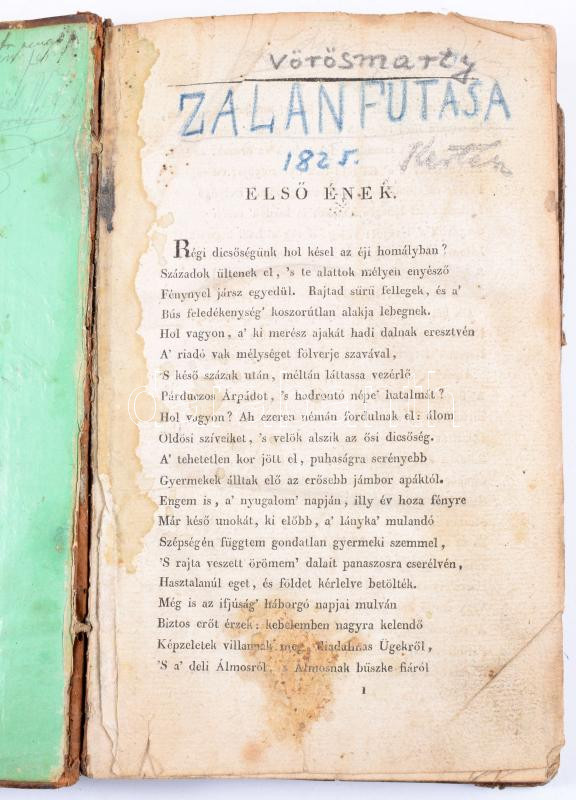 Vörösmarty
ZALÁN FUTÁSA
1825.
ELSŐ ÉNEK.
Régi dicsőségünk hol késel az éji homályban?
Századok ültenek el, 's te alattok mélyen enyésző
Fénynyel jársz egyedűl. Rajtad sürü fellegek, és a'
Bús feledékenység' koszorútlan alakja lebegnek.
Hol vagyon, a' ki merész ajakát hadi dalnak eresztvén
A' riadó vak mélységet fölverje szavával,
'S késő százak után, méltán láttassa vezérlő
Párduczos Árpádot, 's hadrontó népe' hatalmát?
Hol vagyon? Ah ezeren némán fordulnak el: álom
Öldösi szíveiket, 's velök alszik az ősi dicsőség.
A' tehetetlen kor jött el, puhaságra serényebb
Gyermekek álltak elő az erősebb jámbor apáktól.
Engem is, a' nyugalom' napján, illy év hoza fényre
Már késő unokát, ki előbb, a' lányka' mulandó
Szépségén függtem gondatlan gyermeki szemmel,
'S rajta veszett örömem' dalait panaszosra cserélvén,
Hasztalanúl eget, és földet kérlelve betölték.
Még is az ifjúság' háborgó napjai mulván
Biztos erőt érzek: kebelemben nagyra kelendő
Képzeletek villannak meg, diadalmas Ügekről,
'S a' deli Álmosról, 's Álmosnak büszke fiáról
1